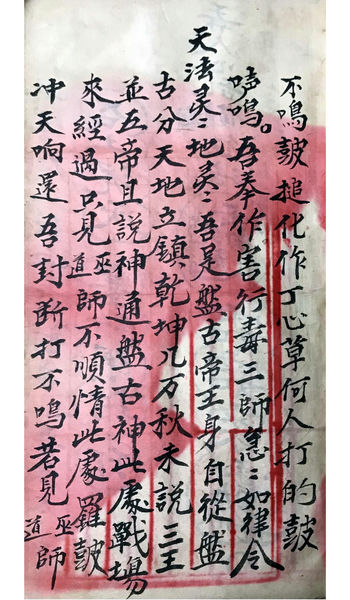 不鳴皷搥化作丁心草何人打的皷
唠鳴。吾奉作害行毒三師急〻如律令
天法灵〻地灵〻吾是盤古帝王身自從盤
古分天地立鎮乾坤几万秋未説三王
並五帝且説神通盤古神此處戰場
來經過只見巫道師不順情此處羅皷
冲天响還吾封断打不鳴若見巫道師